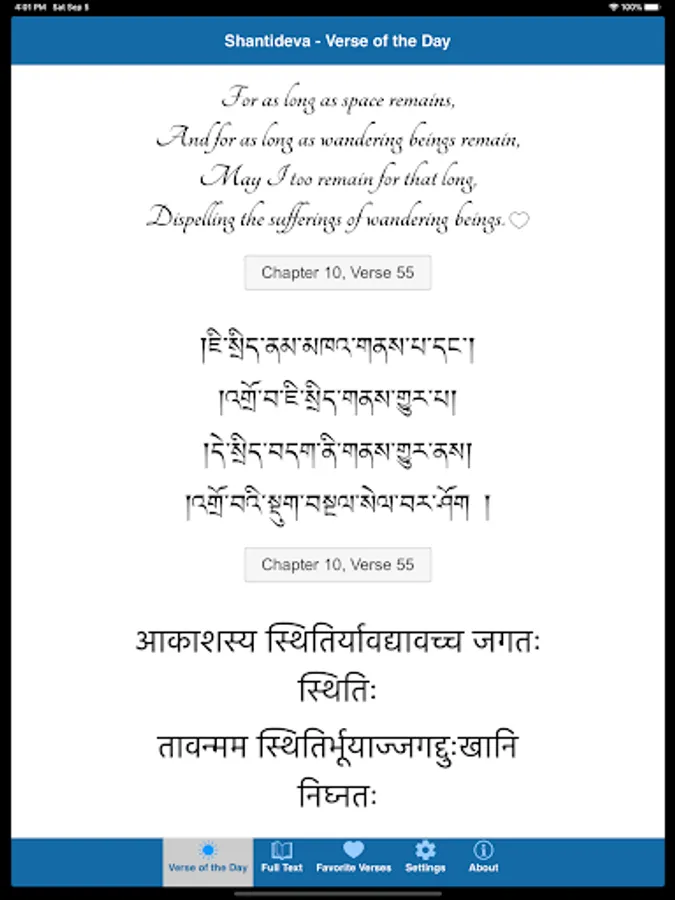 4:01 PM Sat Sep 5 100%
Shantideva - Verse of the Day
For as long as space remains,
And for as long as wandering beings remain,
May I too remain for that long,
Dispelling the sufferings of wandering beings.
Chapter 10, Verse 55
།ཇི་སྲིད་ནམ་མཁའ་གནས་པ་དང་།
།འགྲོ་བ་ཇི་སྲིད་གནས་གྱུར་པ།
།དེ་སྲིད་བདག་ནི་གནས་གྱུར་ནས།
།འགྲོ་བའི་སྡུག་བསྔལ་སེལ་བར་ཤོག །
Chapter 10, Verse 55
आकाशस्य स्थितिर्यावद्यावच्च जगतः
स्थितिः
तावन्मम स्थितिर्भूयाज्जगद्दुःखानि
निघ्नतः
Verse of the Day Full Text Favorite Verses Settings About